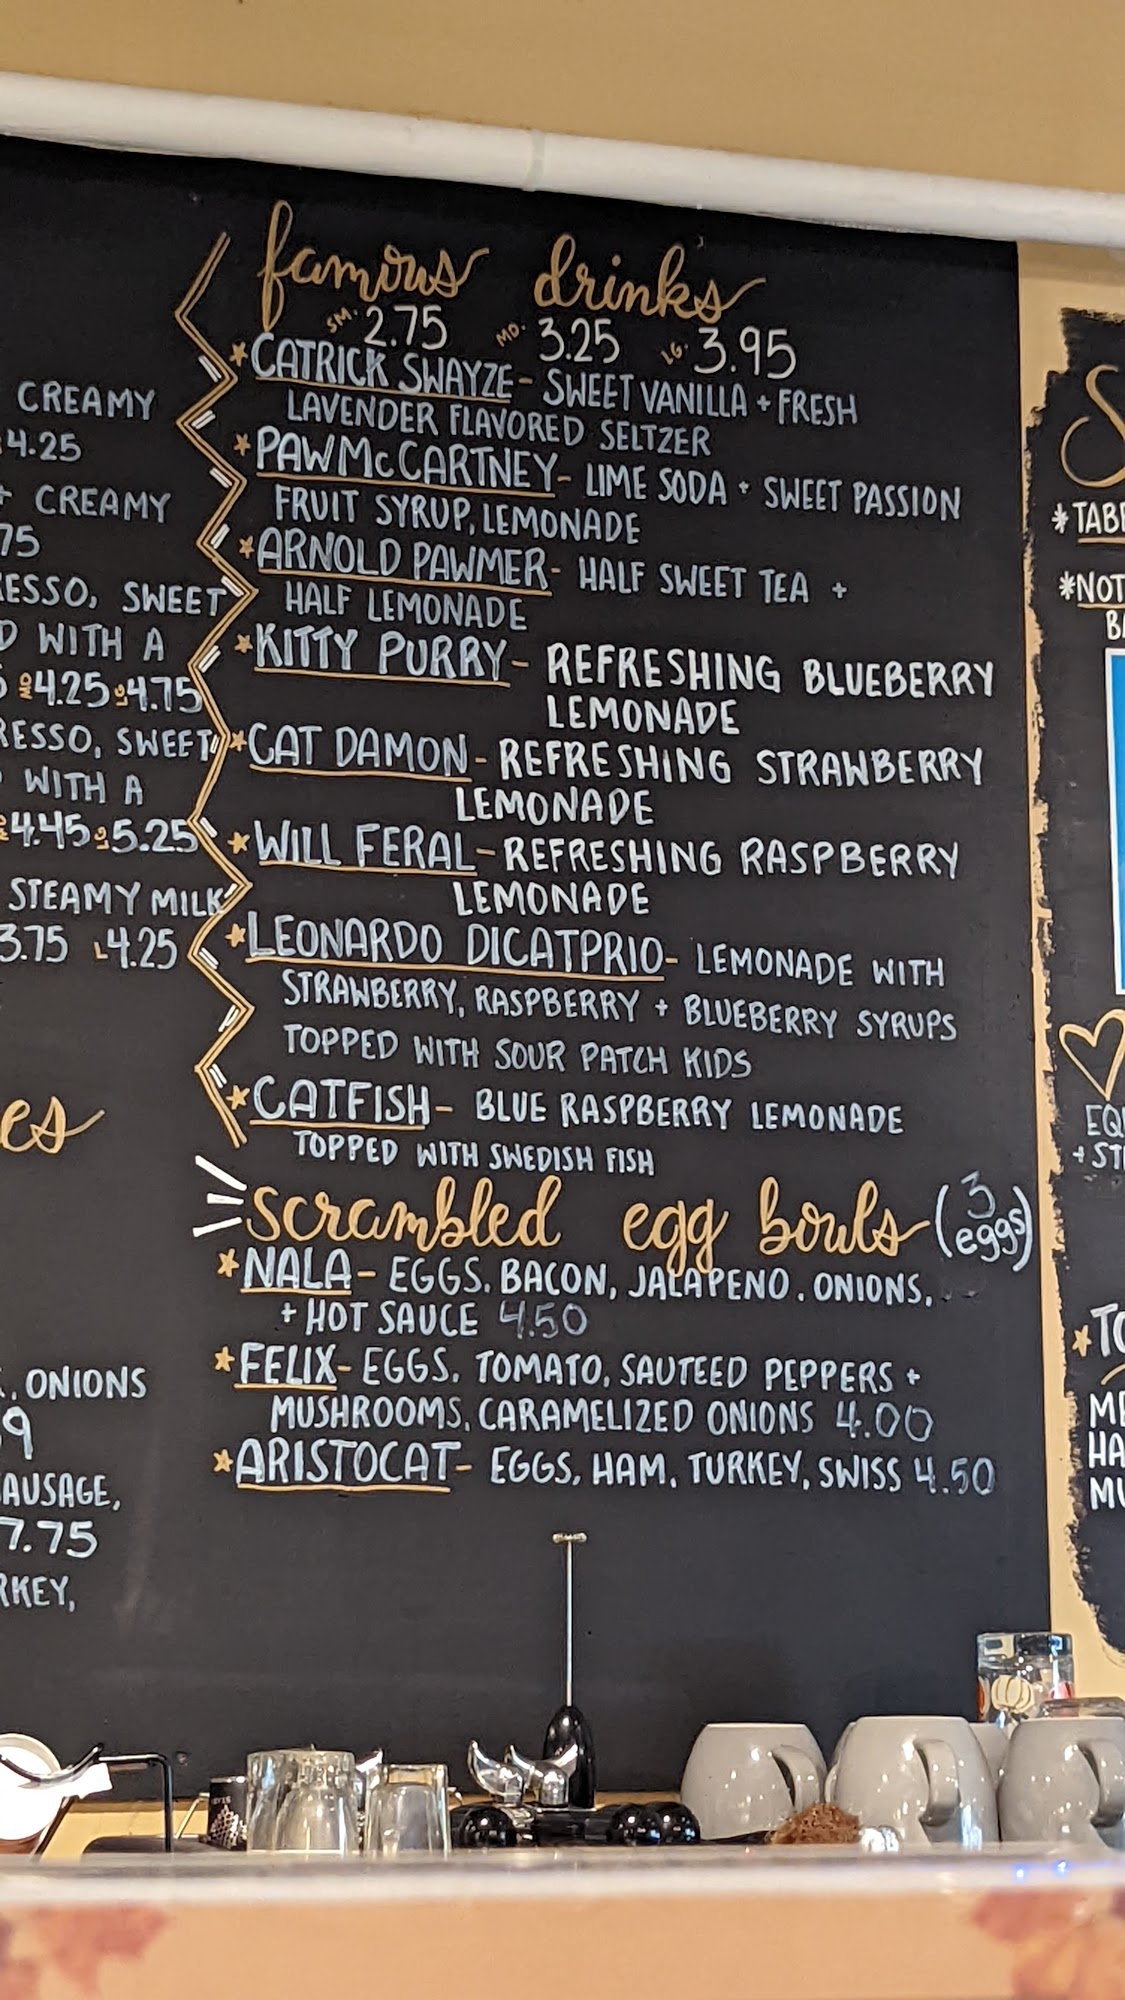 CREAMY
4.25
+ CREAMY
75
ESSO, SWEET
D WITH A
4.25 4.75
RESSO, SWEET
WITH A
4.45 5.25
STEAMY MILK
3.75 L4.25
es
, ONIONS
9
AUSAGE,
7.75
RKEY,
famous drinks
SM. 2.75 MD. 3.25 LG. 3.95
*CATRICK SWAYZE- SWEET VANILLA + FRESH
LAVENDER FLAVORED SELTZER
*PAWMcCARTNEY- LIME SODA + SWEET PASSION
FRUIT SYRUP, LEMONADE
*ARNOLD PAWMER- HALF SWEET TEA +
HALF LEMONADE
*KITTY PURRY- REFRESHING BLUEBERRY
LEMONADE
*CAT DAMON- REFRESHING STRAWBERRY
LEMONADE
*WILL FERAL-REFRESHING RASPBERRY
LEMONADE
*LEONARDO DICATPRIO- LEMONADE WITH
STRAWBERRY, RASPBERRY + BLUEBERRY SYRUPS
TOPPED WITH SOUR PATCH KIDS
*CATFISH- BLUE RASPBERRY LEMONADE
TOPPED WITH SWEDISH FISH
scrambled egg bowls (3 eggs)
*NALA- EGGS, BACON, JALAPENO, ONIONS,
+ HOT SAUCE 4.50
*FELIX- EGGS, TOMATO, SAUTEED PEPPERS +
MUSHROOMS, CARAMELIZED ONIONS 4.00
*ARISTOCAT- EGGS, HAM, TURKEY, SWISS 4.50
S
*TABB
*NOT
BA
EQU
+ ST
*TO
ME
HA
MU